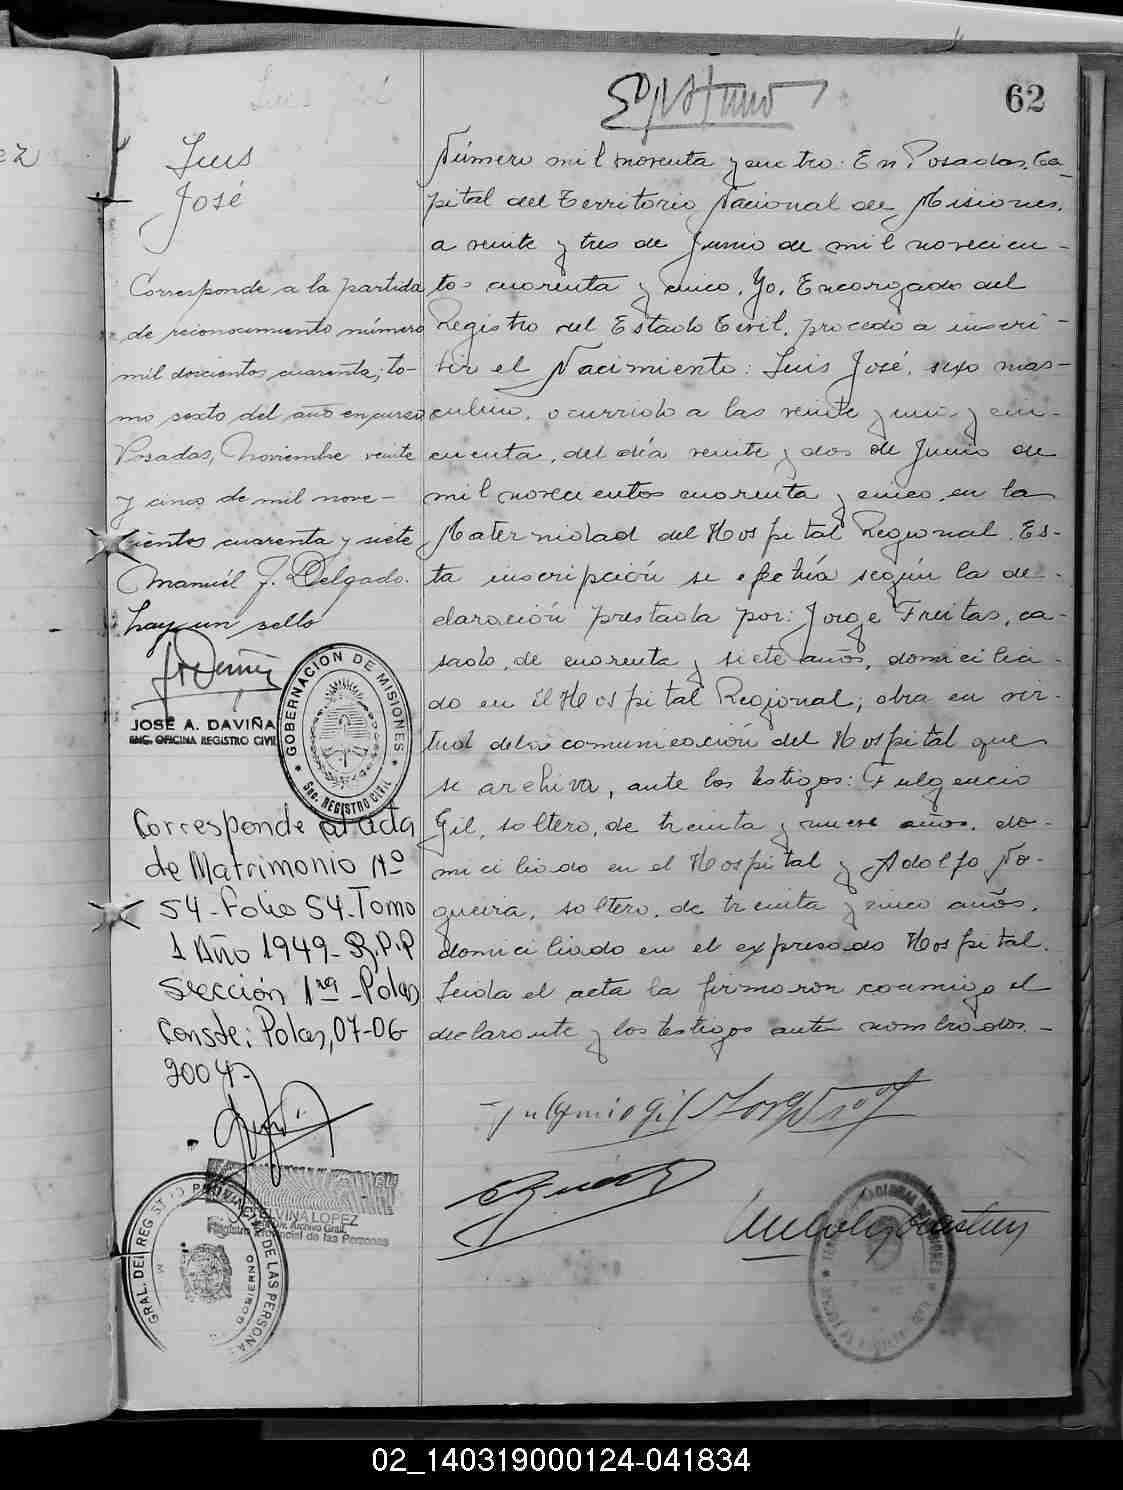 62
Luis
José
Corresponde a la partida
de reconocimiento número
mil doscientos cuarenta, to-
mo sexto del año en curso
Posadas, Noviembre veinte
y cinco de mil nove-
cientos cuarenta y siete
Manuel J. Delgado.
hay un sello
JOSÉ A. DAVIÑA
ENC. OFICINA REGISTRO CIVIL
GOBERNACION DE MISIONES
Sec. REGISTRO CIVIL
Corresponde al acta
de Matrimonio Nº
54-Folio 54-Tomo
1 Año 1949-R.P.P
Sección 1ra-Pdas
Conste: Pdas, 07-06
2004-
ELVINA LOPEZ
Archivo Gral.
Registro Provincial de las Personas
GRAL. DEL REGISTRO PROVINCIAL DE LAS PERSONAS
GOBIERNO
Número mil noventa y cuatro: En Posadas, Ca-
pital del Territorio Nacional de Misiones,
a veinte y tres de Junio de mil novecien-
tos cuarenta y cinco. Yo, Encargado del
Registro del Estado Civil, procedo a inscri-
bir el Nacimiento: Luis José, sexo mas-
culino, ocurrido a las veinte y una y cin-
cuenta, del día veinte y dos de Junio de
mil novecientos cuarenta y cinco, en la
Maternidad del Hospital Regional. Es-
ta inscripción se efectúa según la de-
claración prestada por: Jorge Freitas, ca-
sado, de cuarenta y siete años, domicilia-
do en el Hospital Regional; obra en vir-
tud de la comunicación del Hospital que
se archiva, ante los testigos: Fulgencio
Gil, soltero, de treinta y nueve años, do-
miciliado en el Hospital y Adolfo No-
gueira, soltero, de treinta y cinco años,
domiciliado en el expresado Hospital.
Leida el acta la firmaron conmigo el
declarante y los testigos antes nombrados.-
Fulgencio Gil
02_140319000124-041834